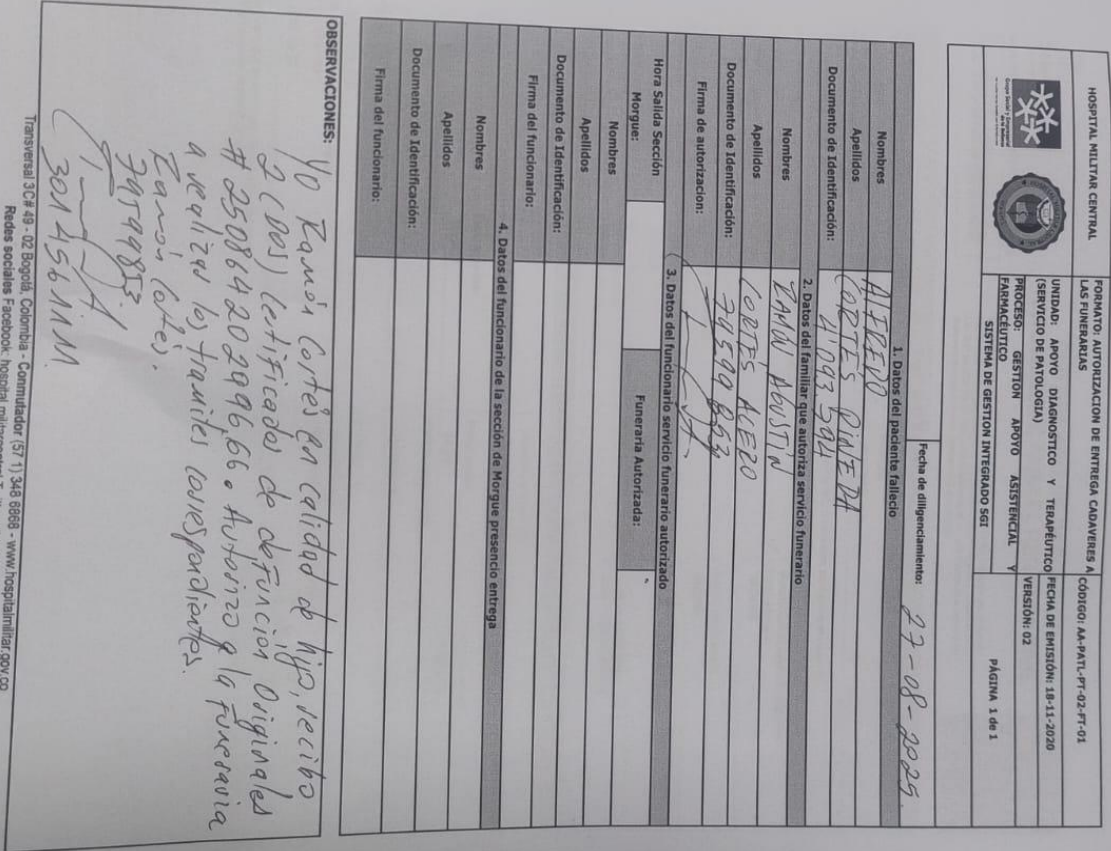 HOSPITAL MILITAR CENTRAL
FORMATO: AUTORIZACION DE ENTREGA CADAVERES A
LAS FUNERARIAS
CÓDIGO: AA-PATL-PT-02-FT-01
UNIDAD: APOYO DIAGNOSTICO Y TERAPÉUTICO
(SERVICIO DE PATOLOGIA)
FECHA DE EMISIÓN: 18-11-2020
VERSIÓN: 02
PROCESO: GESTION APOYO ASISTENCIAL Y
FARMACÉUTICO
SISTEMA DE GESTION INTEGRADO SGI
PÁGINA 1 de 1
Fecha de diligenciamiento: 27-08-2025.
1. Datos del paciente fallecio
Nombres ALFREDO
Apellidos CORTÉS PINEDA
Documento de Identificación: 4'093.594
2. Datos del familiar que autoriza servicio funerario
Nombres RAMÓN AGUSTÍN
Apellidos CORTÉS ACERO
Documento de Identificación: 79599853
Firma de autorizacion:
3. Datos del funcionario servicio funerario autorizado
Hora Salida Sección
Morgue:
Funeraria Autorizada:
Nombres
Apellidos
Documento de Identificación:
Firma del funcionario:
4. Datos del funcionario de la sección de Morgue presencio entrega
Nombres
Apellidos
Documento de Identificación:
Firma del funcionario:
OBSERVACIONES:
Yo Ramón Cortés en calidad de hijo, recibo
2 (DOS) certificados de defunción Originales
# 25086420299666. Autorizo a la funeraria
a realizar los tramites correspondientes.
Ramón Cortés.
79599853.
3014561111.
Transversal 3C# 49 - 02 Bogotá, Colombia - Conmutador (57 1) 348 6868 - www.hospitalmilitar.gov.co
Redes sociales Facebook: hospital militarcentral